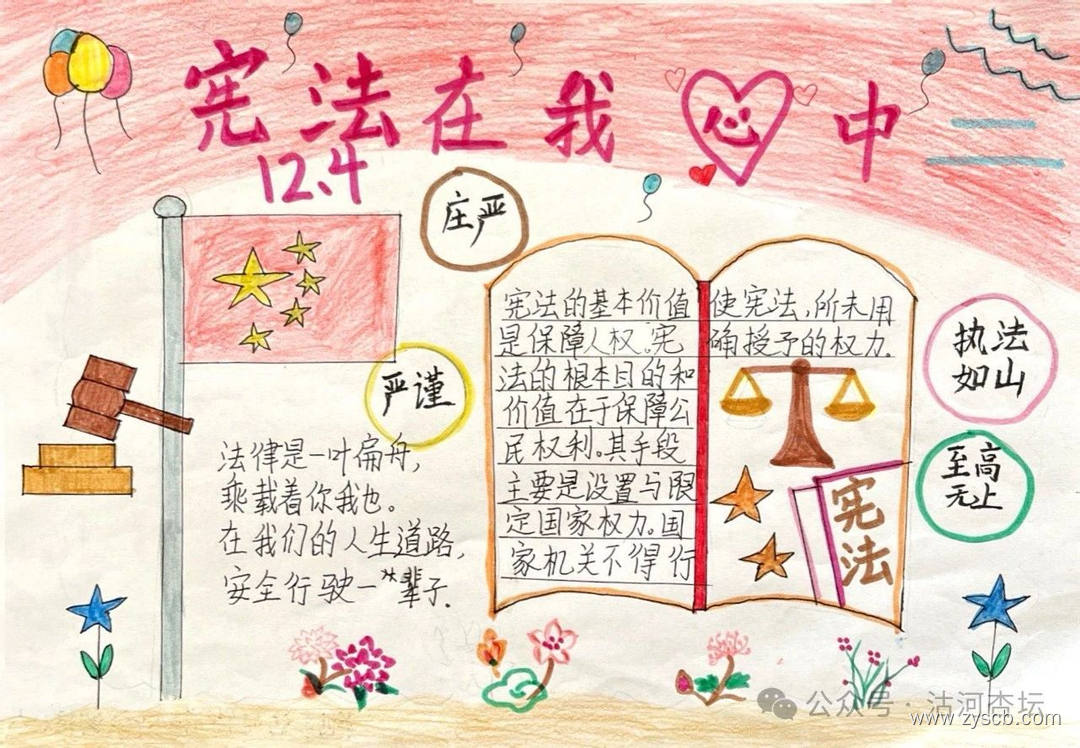 宪法在我心中
12.4
庄严
严谨
法律是一叶扁舟,
乘载着你我也。
在我们的人生道路,
安全行驶一辈子.
宪法的基本价值
是保障人权。宪
法的根本目的和
价值在于保障公
民权利。其手段
主要是设置与限
定国家权力。国
家机关不得行
使宪法,所未用
确授予的权力.
宪法
执法
如山
至高
无上
公众号·沽河杏坛
www.zyscb.com